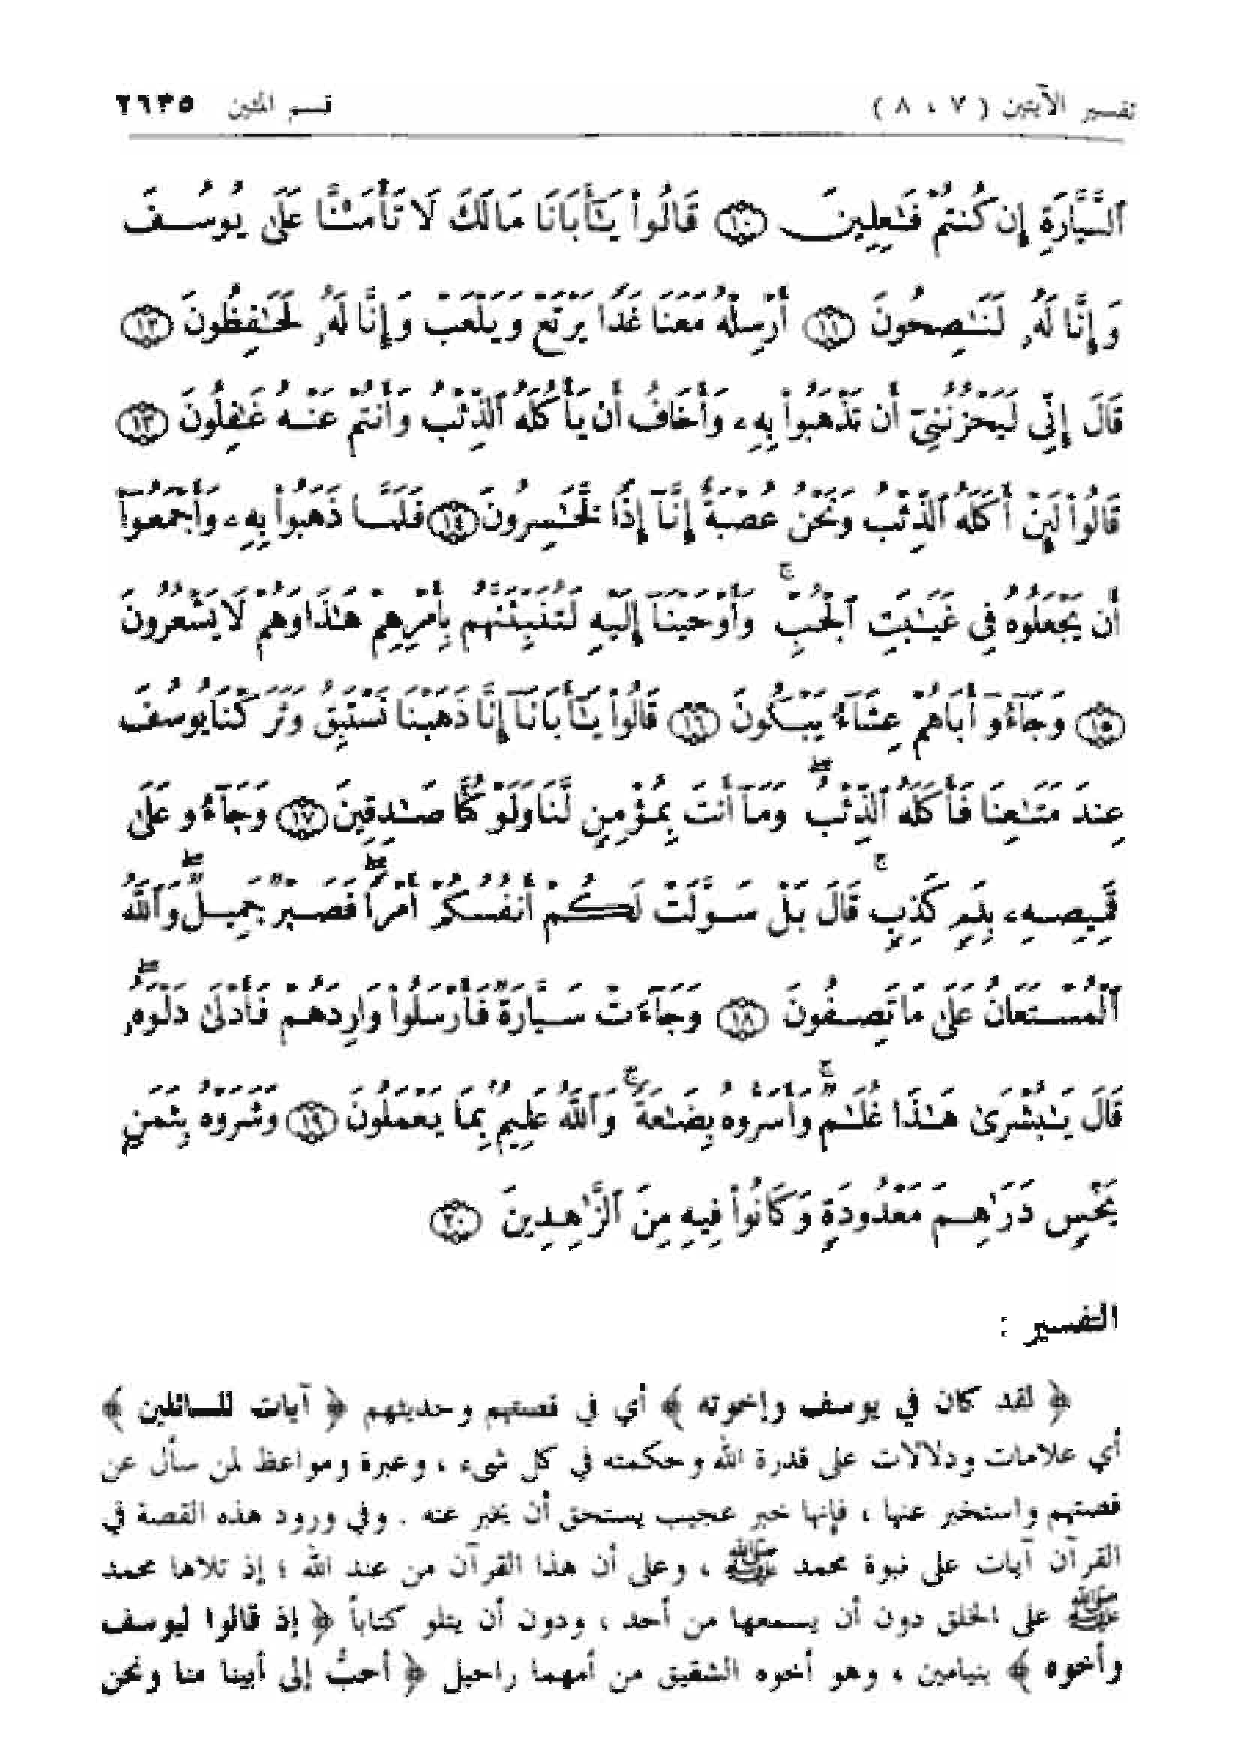 تفسير الآيتين ( ٧ ، ٨ ) قسم المئين ٢٦٣٥
ٱلسَّيَّارَةِ إِن كُنتُمْ فَـٰعِلِينَ ١٠ قَالُوا۟ يَـٰٓأَبَانَا مَالَكَ لَا تَأْمَ۫نَّا عَلَىٰ يُوسُفَ
وَإِنَّا لَهُۥ لَنَـٰصِحُونَ ١١ أَرْسِلْهُ مَعَنَا غَدًا يَرْتَعْ وَيَلْعَبْ وَإِنَّا لَهُۥ لَحَـٰفِظُونَ ١٢
قَالَ إِنِّى لَيَحْزُنُنِىٓ أَن تَذْهَبُوا۟ بِهِۦ وَأَخَافُ أَن يَأْكُلَهُ ٱلذِّئْبُ وَأَنتُمْ عَنْهُ غَـٰفِلُونَ ١٣
قَالُوا۟ لَئِنْ أَكَلَهُ ٱلذِّئْبُ وَنَحْنُ عُصْبَةٌ إِنَّآ إِذًا لَّخَـٰسِرُونَ ١٤ فَلَمَّا ذَهَبُوا۟ بِهِۦ وَأَجْمَعُوٓا۟
أَن يَجْعَلُوهُ فِى غَيَـٰبَتِ ٱلْجُبِّ ۚ وَأَوْحَيْنَآ إِلَيْهِ لَتُنَبِّئَنَّهُم بِأَمْرِهِمْ هَـٰذَا وَهُمْ لَا يَشْعُرُونَ
١٥ وَجَآءُوٓ أَبَاهُمْ عِشَآءً يَبْكُونَ ١٦ قَالُوا۟ يَـٰٓأَبَانَآ إِنَّا ذَهَبْنَا نَسْتَبِقُ وَتَرَكْنَا يُوسُفَ
عِندَ مَتَـٰعِنَا فَأَكَلَهُ ٱلذِّئْبُ ۖ وَمَآ أَنتَ بِمُؤْمِنٍ لَّنَا وَلَوْ كُنَّا صَـٰدِقِينَ ١٧ وَجَآءُو عَلَىٰ
قَمِيصِهِۦ بِدَمٍ كَذِبٍ ۚ قَالَ بَلْ سَوَّلَتْ لَكُمْ أَنفُسُكُمْ أَمْرًا ۖ فَصَبْرٌ جَمِيلٌ ۖ وَٱللَّهُ
ٱلْمُسْتَعَانُ عَلَىٰ مَا تَصِفُونَ ١٨ وَجَآءَتْ سَيَّارَةٌ فَأَرْسَلُوا۟ وَارِدَهُمْ فَأَدْلَىٰ دَلْوَهُۥ ۖ
قَالَ يَـٰبُشْرَىٰ هَـٰذَا غُلَـٰمٌ ۚ وَأَسَرُّوهُ بِضَـٰعَةً ۚ وَٱللَّهُ عَلِيمٌۢ بِمَا يَعْمَلُونَ ١٩ وَشَرَوْهُ بِثَمَنٍۭ
بَخْسٍ دَرَٰهِمَ مَعْدُودَةٍ وَكَانُوا۟ فِيهِ مِنَ ٱلزَّٰهِدِينَ ٢٠
التفسير :
﴿ لقد كان في يوسف وإخوته ﴾ أي في قصتهم وحديثهم ﴿ آيات للسائلين ﴾
أي علامات ودلالات على قدرة الله وحكمته في كل شيء ، وعبرة ومواعظ لمن سأل عن
قصتهم واستخبر عنها ، فإنها خبر عجيب يستحق أن يخبر عنه . وفي ورود هذه القصة في
القرآن آيات على نبوة محمد ﷺ ، وعلى أن هذا القرآن من عند الله ؛ إذ تلاها محمد
ﷺ على الخلق دون أن يسمعها من أحد ، ودون أن يتلو كتاباً ﴿ إذ قالوا ليوسف
وأخوه ﴾ بنيامين ، وهو أخوه الشقيق من أمهما راحيل ﴿ أحبُّ إلى أبينا منا ونحن